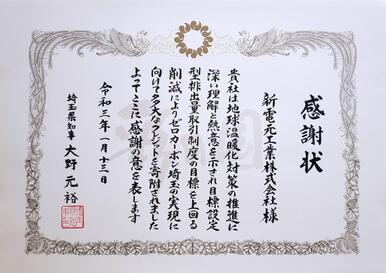 感謝状
新電元工業株式会社様
貴社は地球温暖化対策の推進に
深い理解と熱意を示され目標設定
型排出量取引制度の目標を上回る
削減によりゼロカーボン埼玉の実現に
向けて多大なクレジットを寄附されました
よってここに感謝の意を表します
令和三年一月十三日
埼玉県知事 大野元裕